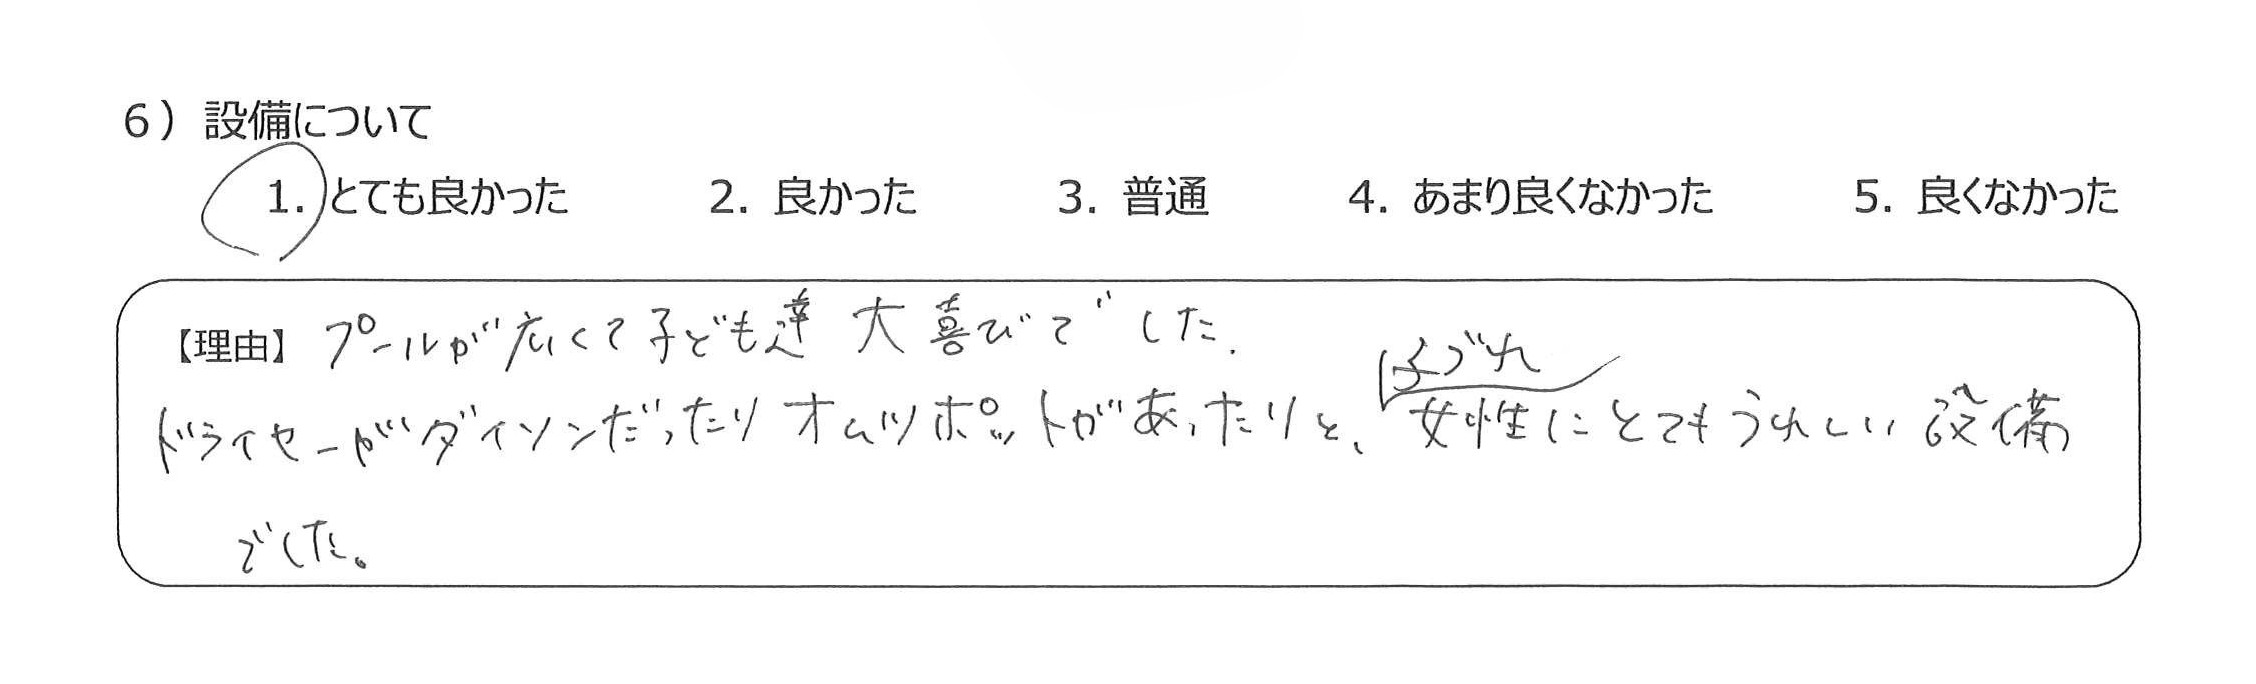 6）設備について
1. とても良かった 2. 良かった 3. 普通 4. あまり良くなかった 5. 良くなかった
【理由】プールが広くて子ども達 大喜びでした.
子づれ
ドライヤーがダイソンだったりオムツポットがあったりと、女性にとてもうれしい設備
でした。